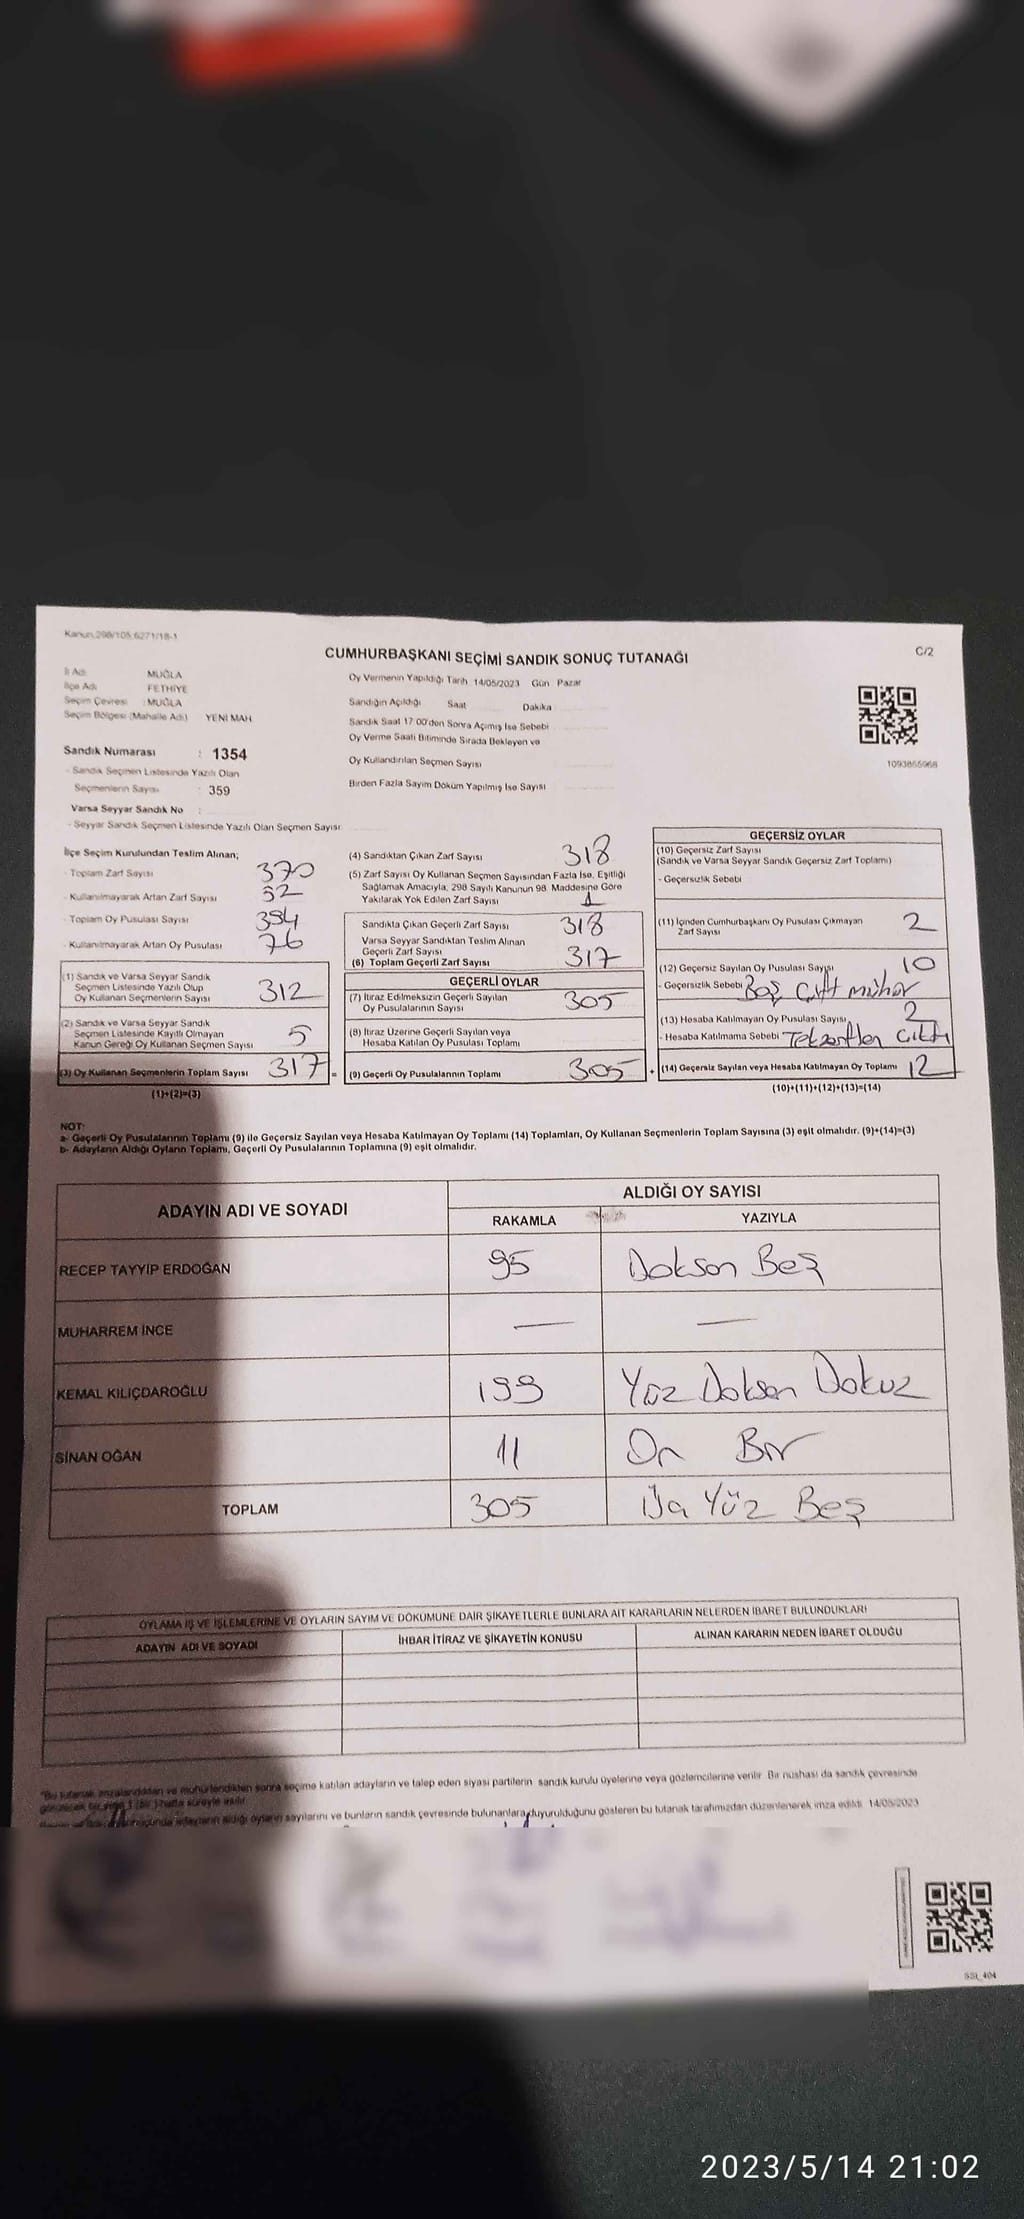 Kanun.298/105.6271/18-1
C/2
CUMHURBAŞKANI SEÇİMİ SANDIK SONUÇ TUTANAĞI
İl Adı MUĞLA
İlçe Adı FETHİYE
Seçim Çevresi : MUĞLA
Seçim Bölgesi (Mahalle Adı) YENİ MAH
Sandık Numarası : 1354
- Sandık Seçmen Listesinde Yazılı Olan
Seçmenlerin Sayısı : 359
Varsa Seyyar Sandık No :
- Seyyar Sandık Seçmen Listesinde Yazılı Olan Seçmen Sayısı:
Oy Vermenin Yapıldığı Tarih 14/05/2023 Gün Pazar
Sandığın Açıldığı Saat Dakika
Sandık Saat 17.00'den Sonra Açımış İse Sebebi
Oy Verme Saati Bitiminde Sırada Bekleyen ve
Oy Kullandırılan Seçmen Sayısı
Birden Fazla Sayım Döküm Yapılmış İse Sayısı
1093855968
İlçe Seçim Kurulundan Teslim Alınan;
- Toplam Zarf Sayısı 370
- Kullanılmayarak Artan Zarf Sayısı 52
- Toplam Oy Pusulası Sayısı 394
- Kullanılmayarak Artan Oy Pusulası 76
(1) Sandık ve Varsa Seyyar Sandık
Seçmen Listesinde Yazılı Olup
Oy Kullanan Seçmenlerin Sayısı 312
(2) Sandık ve Varsa Seyyar Sandık
Seçmen Listesinde Kayıtlı Olmayan
Kanun Gereği Oy Kullanan Seçmen Sayısı 5
(3) Oy Kullanan Seçmenlerin Toplam Sayısı 317 =
(1)+(2)=(3)
(4) Sandıktan Çıkan Zarf Sayısı 318
(5) Zarf Sayısı Oy Kullanan Seçmen Sayısından Fazla İse, Eşitliği
Sağlamak Amacıyla, 298 Sayılı Kanunun 98. Maddesine Göre
Yakılarak Yok Edilen Zarf Sayısı 1
Sandıkta Çıkan Geçerli Zarf Sayısı 318
Varsa Seyyar Sandıktan Teslim Alınan
Geçerli Zarf Sayısı
(6) Toplam Geçerli Zarf Sayısı 317
GEÇERLİ OYLAR
(7) İtiraz Edilmeksizin Geçerli Sayılan
Oy Pusulalarının Sayısı 305
(8) İtiraz Üzerine Geçerli Sayılan veya
Hesaba Katılan Oy Pusulası Toplamı
(9) Geçerli Oy Pusulalarının Toplamı 305 +
GEÇERSİZ OYLAR
(10) Geçersiz Zarf Sayısı
(Sandık ve Varsa Seyyar Sandık Geçersiz Zarf Toplamı)
- Geçersizlik Sebebi
(11) İçinden Cumhurbaşkanı Oy Pusulası Çıkmayan
Zarf Sayısı 2
(12) Geçersiz Sayılan Oy Pusulası Sayısı 10
- Geçersizlik Sebebi Boş Çift mühür
(13) Hesaba Katılmayan Oy Pusulası Sayısı 2
- Hesaba Katılmama Sebebi Tekzarftan Çıktı
(14) Geçersiz Sayılan veya Hesaba Katılmayan Oy Toplamı 12
(10)+(11)+(12)+(13)=(14)
NOT:
a- Geçerli Oy Pusulalarının Toplamı (9) ile Geçersiz Sayılan veya Hesaba Katılmayan Oy Toplamı (14) Toplamları, Oy Kullanan Seçmenlerin Toplam Sayısına (3) eşit olmalıdır. (9)+(14)=(3)
b- Adayların Aldığı Oyların Toplamı, Geçerli Oy Pusulalarının Toplamına (9) eşit olmalıdır.
ADAYIN ADI VE SOYADI ALDIĞI OY SAYISI
RAKAMLA YAZIYLA
RECEP TAYYİP ERDOĞAN 95 Doksan Beş
MUHARREM İNCE — —
KEMAL KILIÇDAROĞLU 199 Yüz Doksan Dokuz
SİNAN OĞAN 11 On Bir
TOPLAM 305 Üç Yüz Beş
OYLAMA İŞ VE İŞLEMLERİNE VE OYLARIN SAYIM VE DÖKÜMÜNE DAİR ŞİKAYETLERLE BUNLARA AİT KARARLARIN NELERDEN İBARET BULUNDUKLARI
ADAYIN ADI VE SOYADI İHBAR İTİRAZ VE ŞİKAYETİN KONUSU ALINAN KARARIN NEDEN İBARET OLDUĞU
*Bu tutanak imzalandıktan ve mühürlendikten sonra seçime katılan adayların ve talep eden siyasi partilerin sandık kurulu üyelerine veya gözlemcilerine verilir. Bir nüshası da sandık çevresinde
süreyle asılır.
adayların aldığı oyların sayılarını ve bunların sandık çevresinde bulunanlara duyurulduğunu gösteren bu tutanak tarafımızdan düzenlenerek imza edildi. 14/05/2023
SSI_404
2023/5/14 21:02